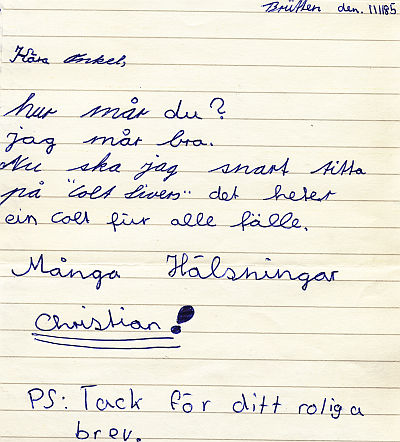 Brütten den. 11185
Kära onkel,
hur mår du?
jag mår bra.
Nu ska jag snart titta
på "Colt Sivers" det heter
ein Colt für alle fälle.
Många Hälsningar
Christian!
PS: Tack för ditt roliga
brev.